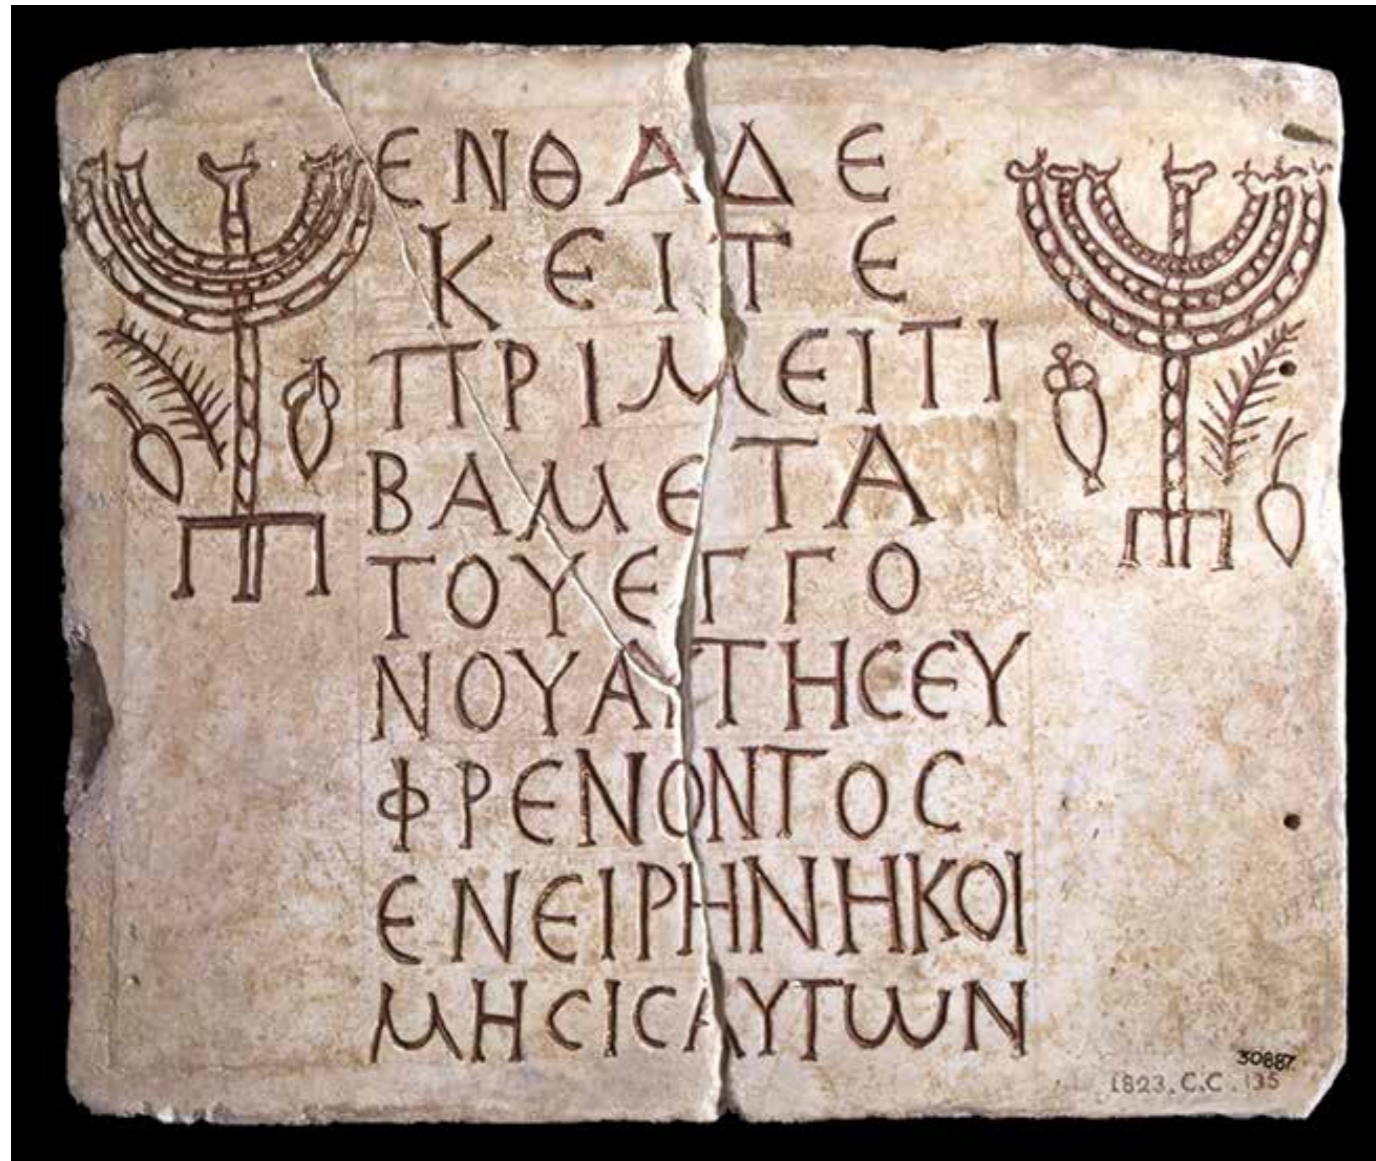 ΕΝΘΑΔΕ
ΚΕΙΤΕ
ΠΡΙΜΕΙΤΙ
ΒΑΜΕΤΑ
ΤΟΥΕΓΓΟ
ΝΟΥΑΥΤΗϹΕΥ
ΦΡΕΝΟΝΤΟϹ
ΕΝΕΙΡΗΝΗΚΟΙ
ΜΗϹΙϹΑΥΤωΝ
30887.
1823.C.C.135